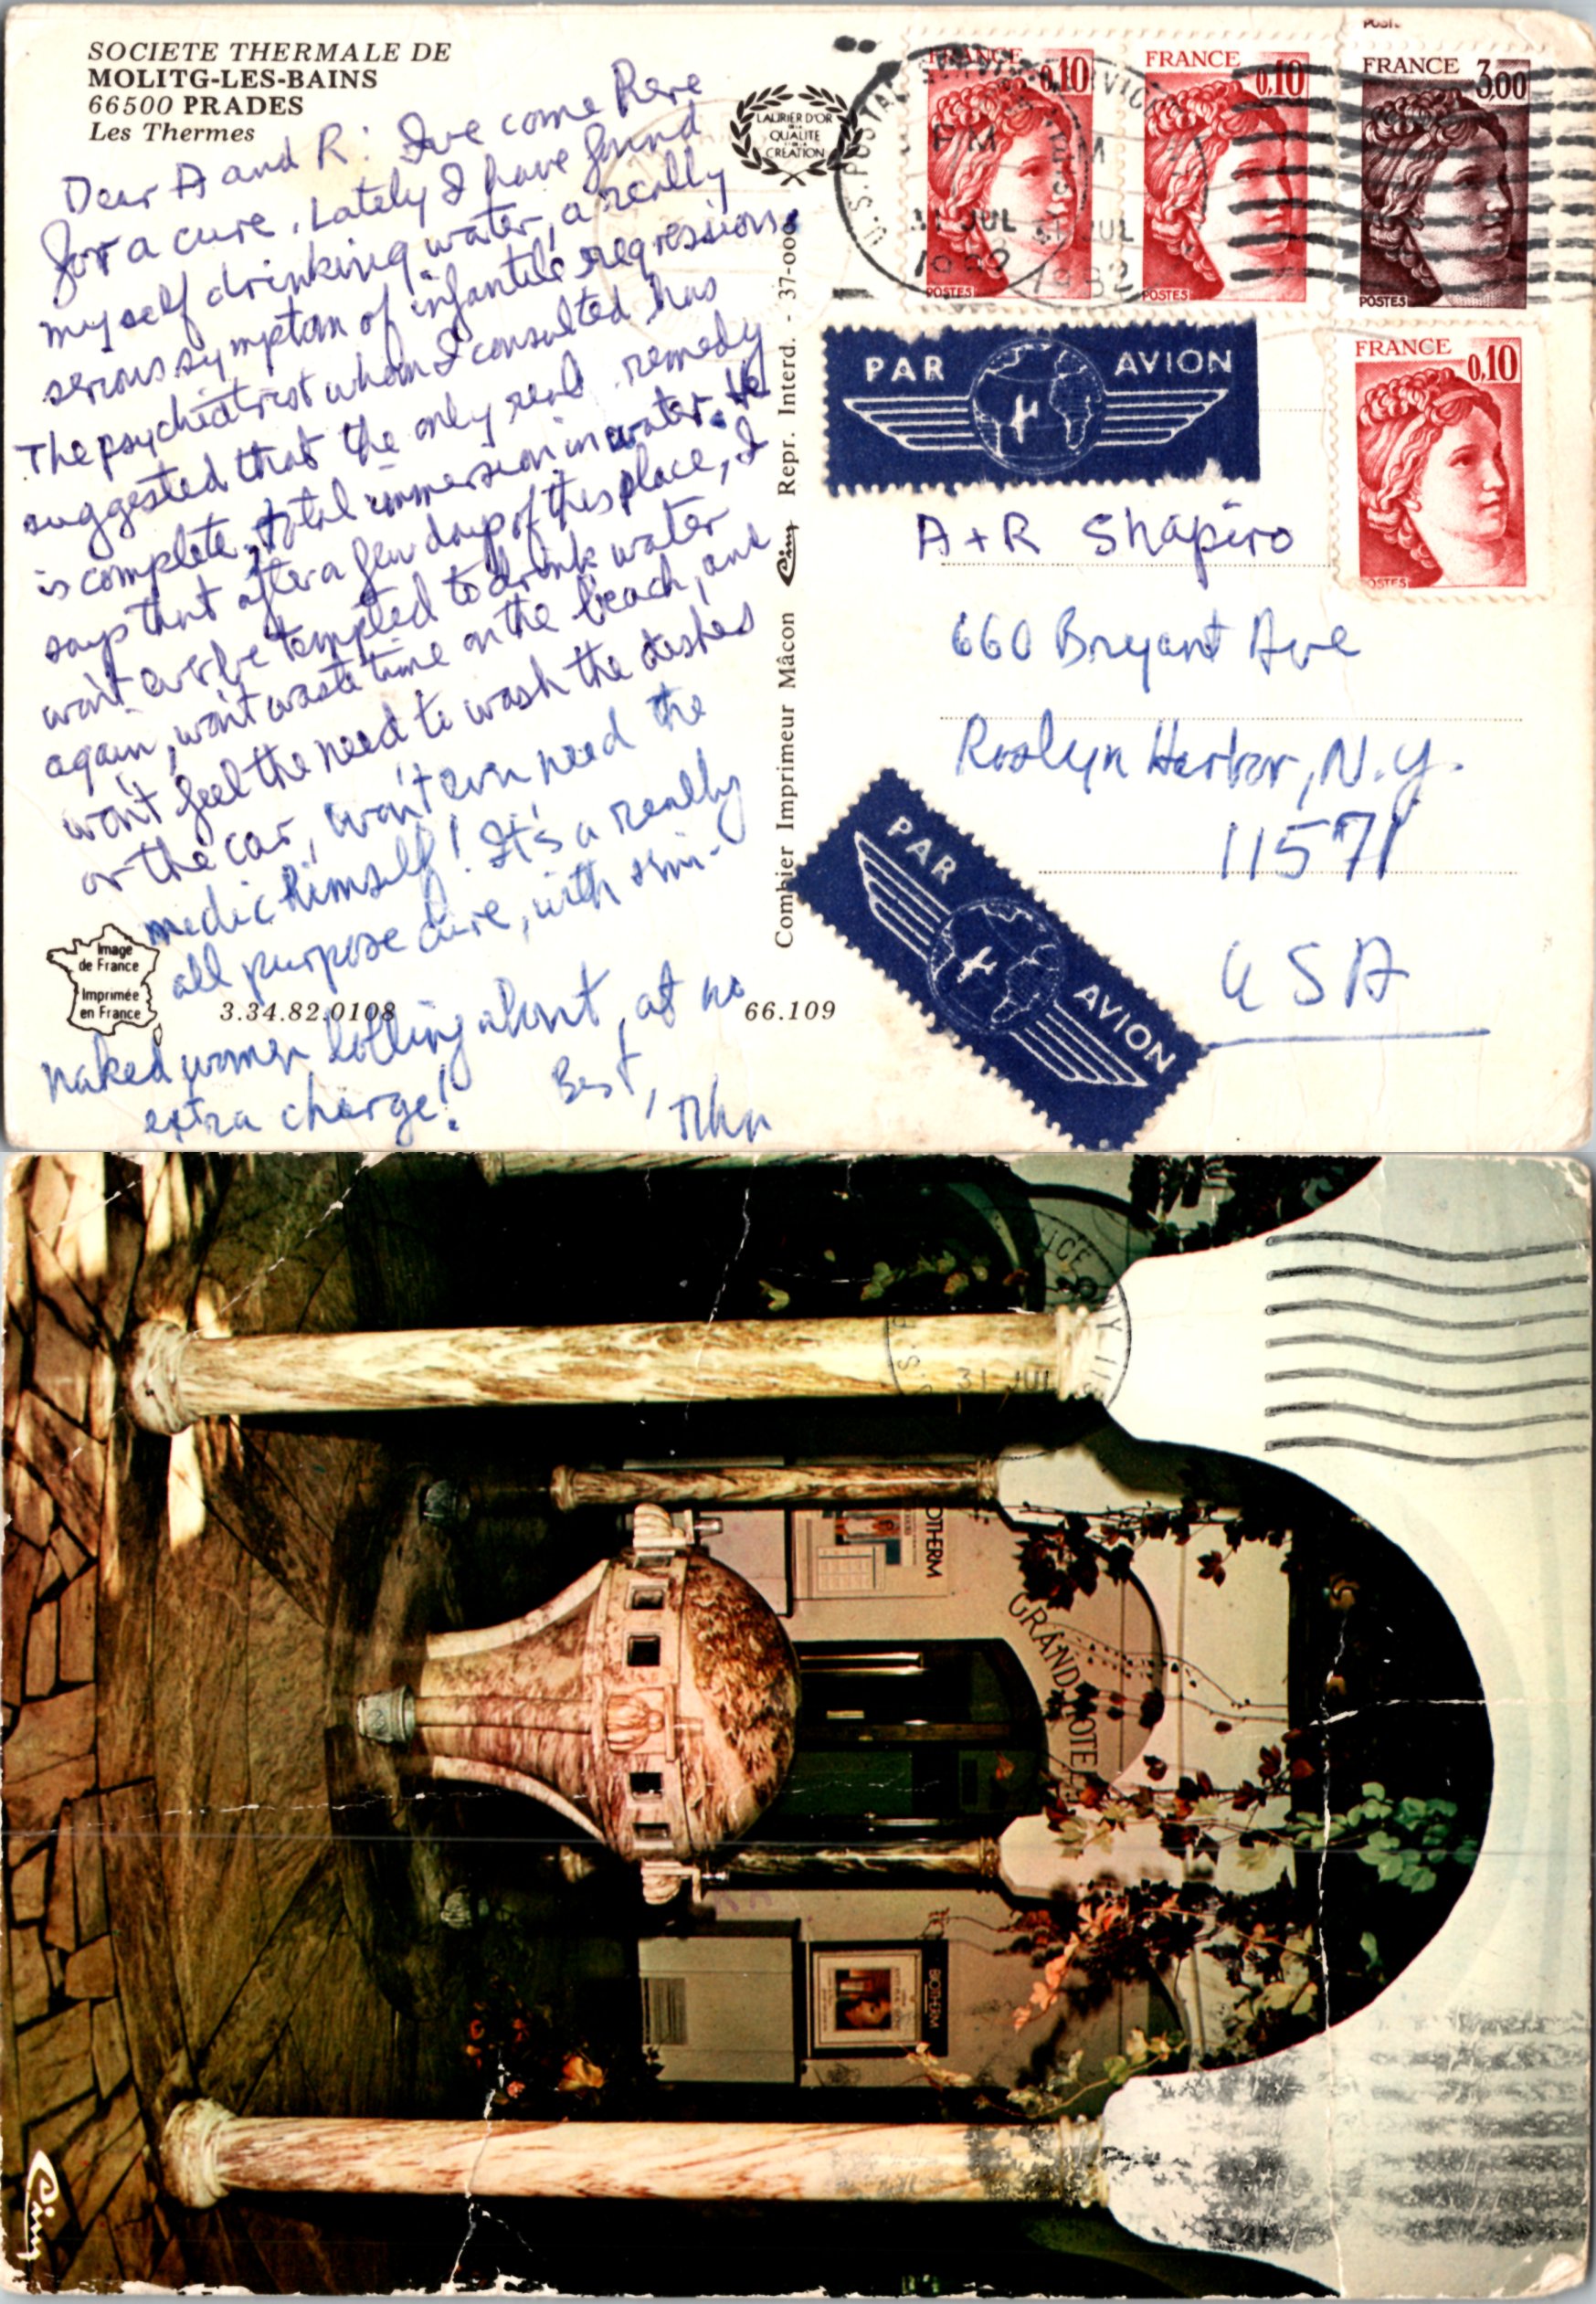 SOCIETE THERMALE DE
MOLITG-LES-BAINS
66500 PRADES
Les Thermes
Dear A and R: I've come here
for a cure. Lately I have found
myself drinking water, a really
serious symptom of infantile regression.
The psychiatrist whom I consulted has
suggested that the only real remedy
is complete, total immersion in water. He
says that after a few days of this place, I
won't ever be tempted to drink water
again, won't waste time on the beach, and
won't feel the need to wash the dishes
or the car, won't even need the
medic himself! It's a really
all purpose cure, with
naked women lolling about, at no
extra charge!
Best,
Image
de France
Imprimée
en France
3.34.82.0108
66.109
LAURIER D'OR
DE LA
QUALITE
CREATION
Combier Imprimeur Mâcon Cim Repr. Interd. - 37-000
U.S. POSTAL SERVICE
PM
31 JUL
1982
31 JUL
1982
FRANCE 0,10
POSTES
FRANCE 0,10
POSTES
FRANCE 3,00
POSTES
FRANCE 0,10
POSTES
PAR AVION
A + R Shapiro
660 Bryant Ave
Roslyn Harbor, N.Y.
11571
USA
PAR AVION
31 JUL
NY 11
OTHERM
GRAND HOTEL
BIOTHERM
Cim